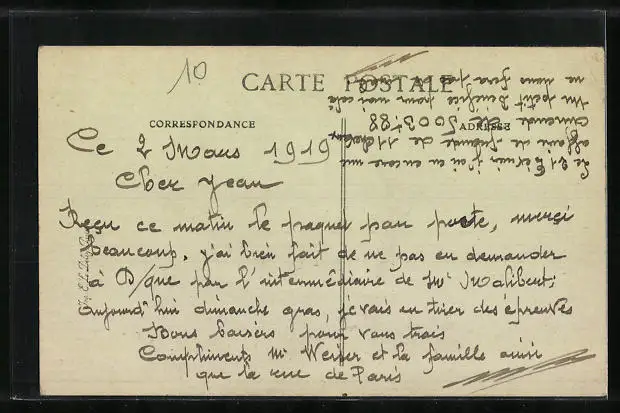 10
CARTE POSTALE
CORRESPONDANCE
ADRESSE
Ce 2 Mars 1919
Cher Jean
Reçu ce matin le paquet par poste, merci
beaucoup, j'ai bien fait de ne pas en demander
à D/que par l'intermédiaire de Mr Malibert;
Aujourd'hui dimanche gras, je vais en tirer des épreuves
Bons baisers pour vous trois
Compliments Mr Weiser et la famille ainsi
que la rue de Paris
Le 21 Février j'ai eu encore une
affaire de fraude de 11 chevaux
amende de 5003f.88
Un petit bénéfice pour moi cela
ne nous fera pas de